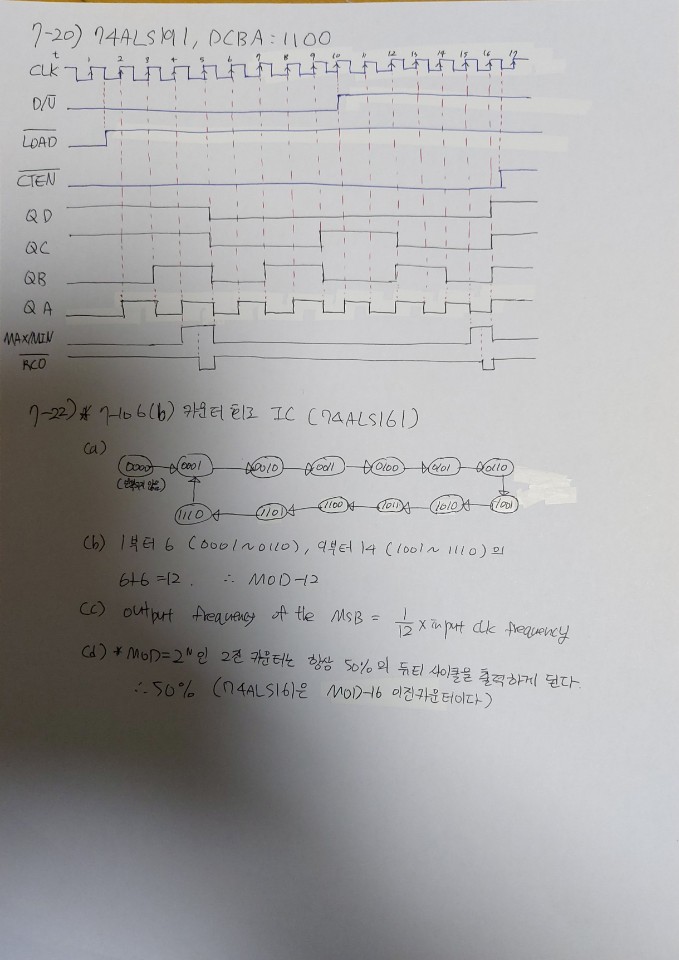 7-20) 74ALS191, DCBA : 1100
t 1 2 3 4 5 6 7 8 9 10 11 12 13 14 15 16 17
CLK
D/U̅
L̅O̅A̅D̅
C̅T̅E̅N̅
QD
QC
QB
QA
MAX/MIN
R̅C̅O̅
7-22) * 7-106(b) 카운터 회로 IC (74ALS161)
(a)
0000 0001 0010 0011 0100 0101 0110
(반복되지 않음)
1110 1101 1100 1011 1010 1001
(b) 1부터 6 (0001~0110), 9부터 14 (1001~1110)의
6+6=12. ∴ MOD-12
(c) output frequency of the MSB = 1/12 × input clk frequency
(d) * MOD=2^N인 2진 카운터는 항상 50%의 듀티 사이클을 출력하게 된다.
∴ 50% (74ALS161은 MOD-16 이진카운터이다)